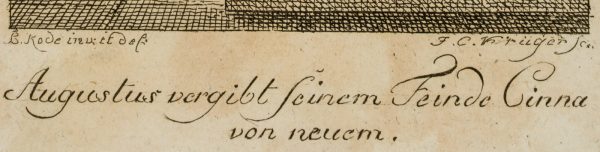 B. Rode inv. et del. J. C. Krüger sc.
Augustus vergibt seinem Feinde Cinna
von neuem.